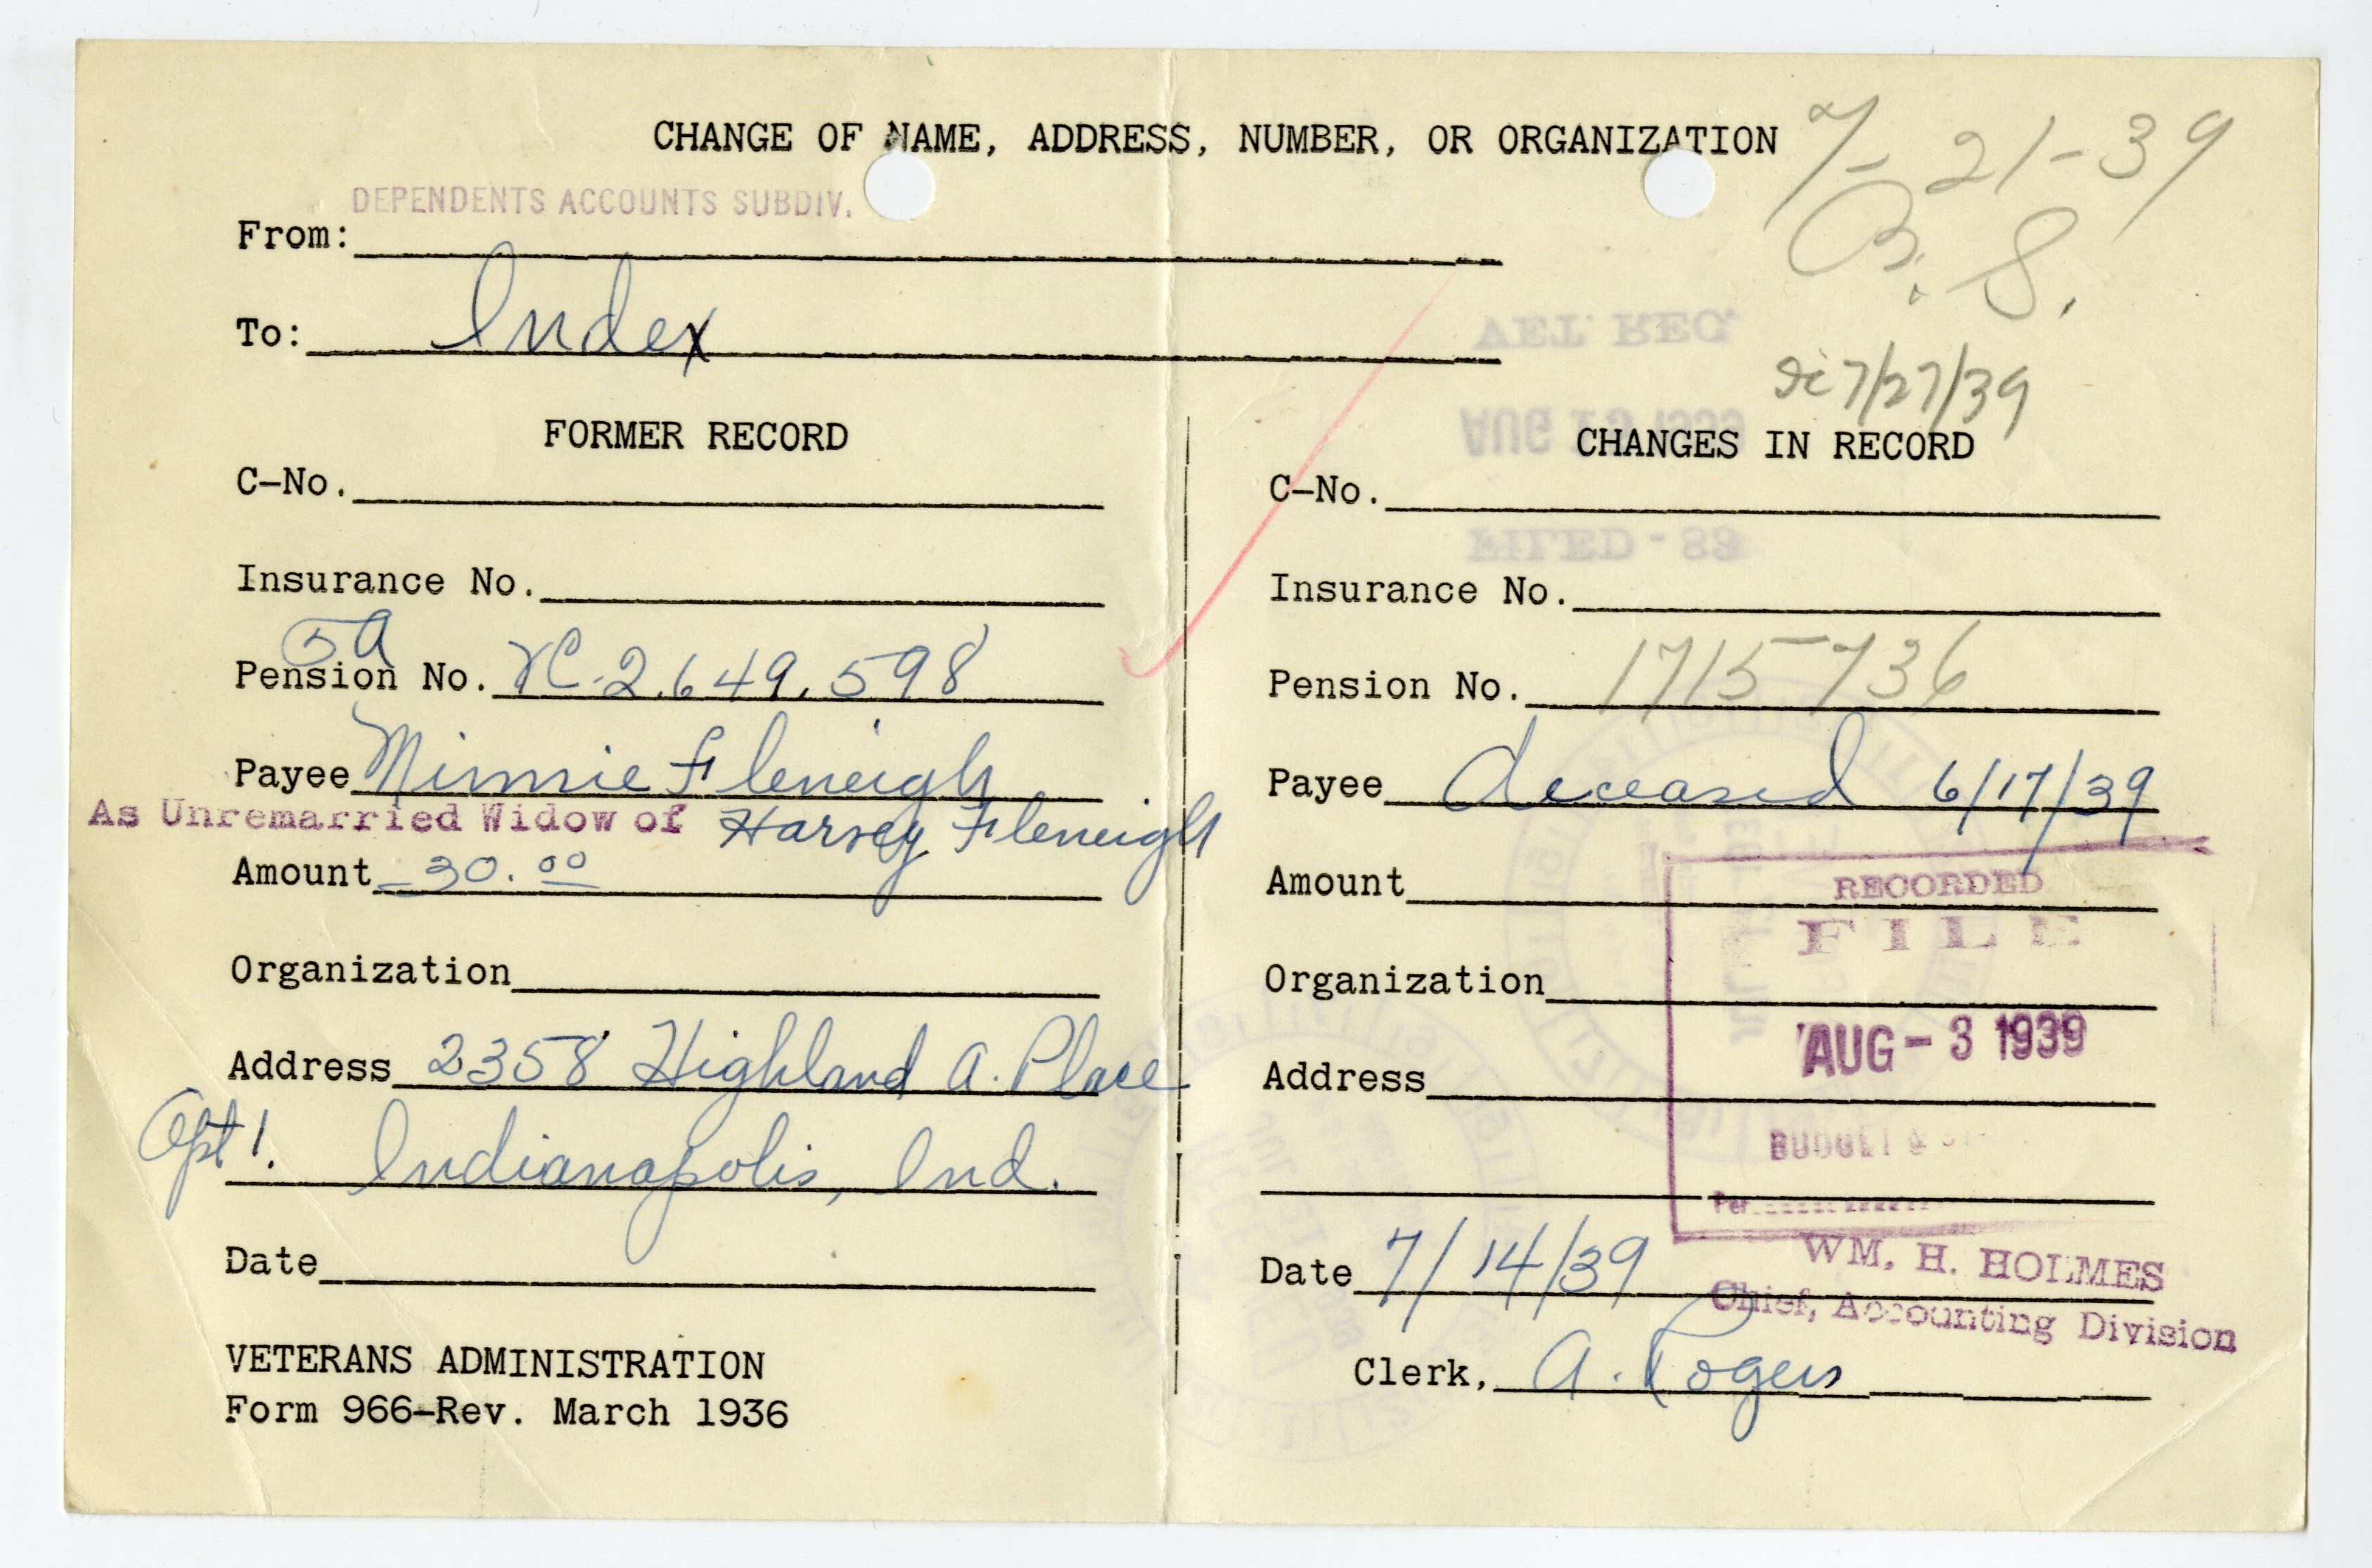 CHANGE OF NAME, ADDRESS, NUMBER, OR ORGANIZATION
7-21-39
B. S.
DEPENDENTS ACCOUNTS SUBDIV.
From:
To: Index
7/27/39
VET. REG.
AUG 1939
FILED - 89
FORMER RECORD
C-No.
Insurance No.
5a
Pension No. XC-2,649,598
Payee Minnie Fleneigh
As Unremarried Widow of Harvey Fleneigh
Amount 30.00
Organization
Address 2358 Highland A. Place
Apt 1. Indianapolis, Ind.
Date
VETERANS ADMINISTRATION
Form 966-Rev. March 1936
CHANGES IN RECORD
C-No.
Insurance No.
Pension No. 1715736
Payee deceased 6/17/39
Amount
RECORDED
FILE
Organization
AUG - 3 1939
Address
BUDGET &
Per
Date 7/14/39
WM. H. HOLMES
Chief, Accounting Division
Clerk, A. Rogers